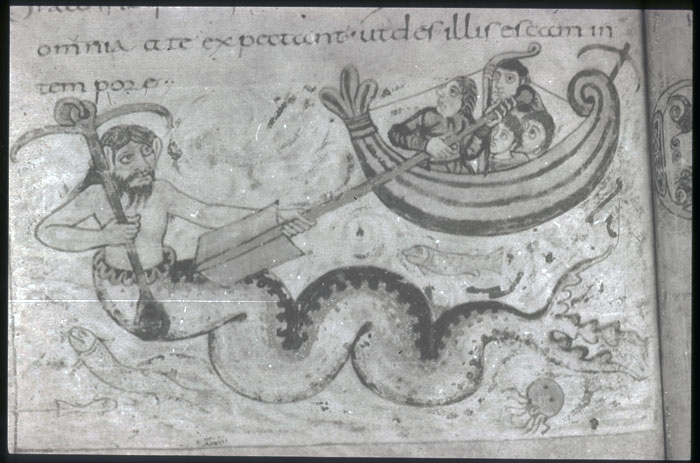 omnia a te expectant · ut des illis escam in
tempore ·